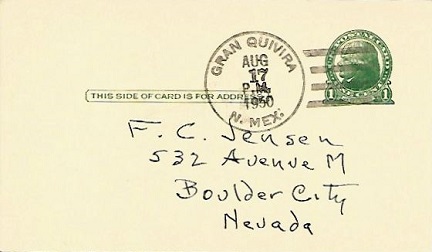 GRAN QUIVIRA
AUG
17
P.M.
1950
N. MEX.
THIS SIDE OF CARD IS FOR ADDRESS
1 1
F. C. Jensen
532 Avenue M
Boulder City
Nevada